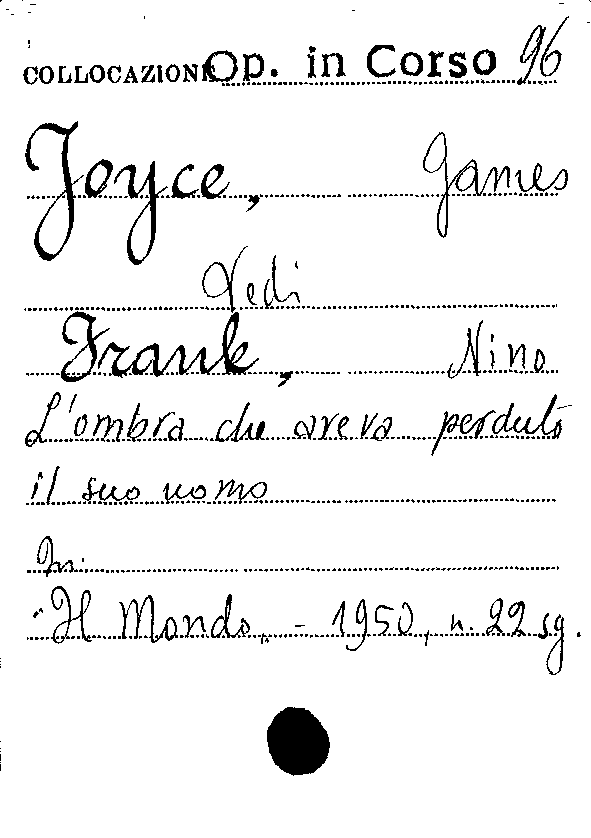 COLLOCAZIONE Op. in Corso 96
Joyce, James
Vedi
Frank, Nino
L'ombra che aveva perduto
il suo uomo
In:
"Il Mondo„ - 1950, n. 22 sg.